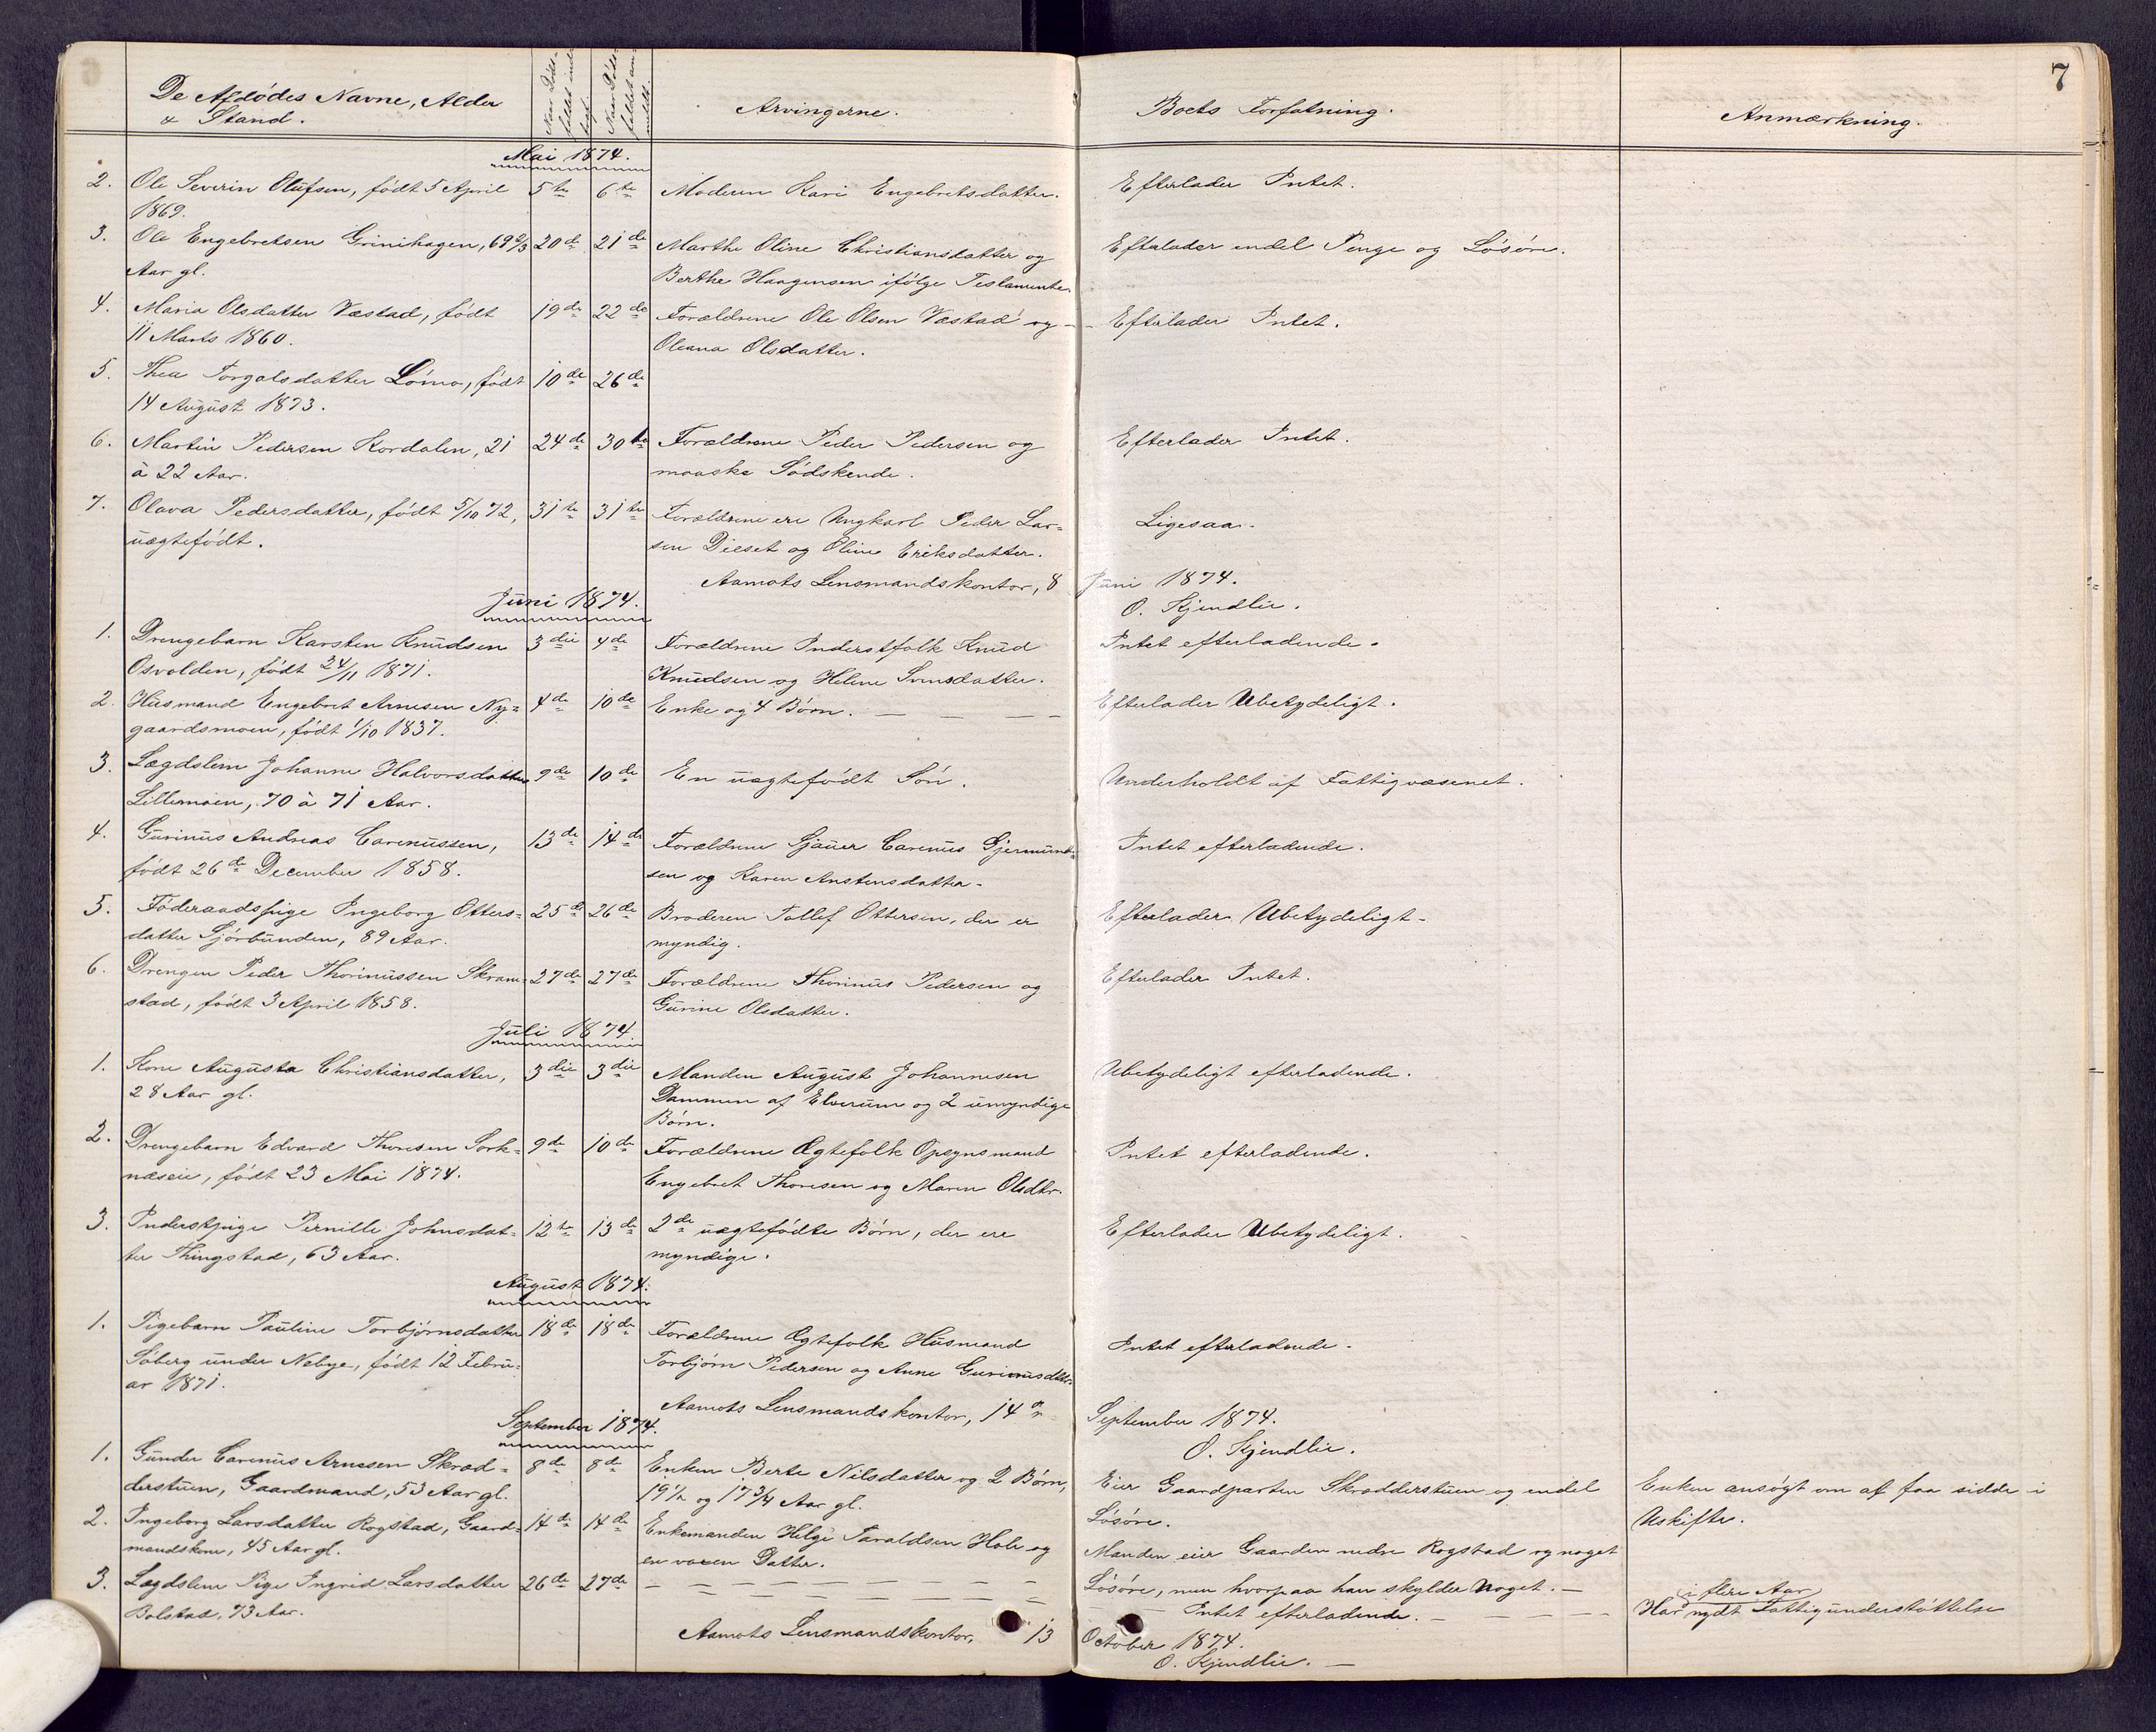 6
7
De Afdødes Navne, Alder
& Stand.
Naar Døds-
faldet ind-
traf.
Naar Døds-
faldet an-
meldt.
Arvingerne.
Boets Forfatning.
Anmærkning.
Mai 1874.
2. Ole Severin Olufsen, født 5 April 5te 6te Moderen Kari Engebretsdatter. Efterlader Intet.
1869.
3. Ole Engebretsen Grinihagen, 69 2/3 20de 21de Marthe Oline Christiansdatter og Efterlader endel Penge og Løsøre.
Aar gl. Berthe Haagensen ifølge Testamente.
4. Maria Olsdatter Væstad, født 19de 22de Forældrene Ole Olsen Væstad og - Efterlader Intet.
11 Marts 1860. Oleana Olsdatter.
5. Thea Torgalsdatter Lømo, født 10de 26de
14 August 1873.
6. Martin Pedersen Kordalen, 21 24de 30te Forældrene Peder Pedersen og Efterlader Intet.
à 22 Aar. maaske Sødskende.
7. Olava Pedersdatter, født 5/10 72, 31te 31te Forældrene ere Ungkarl Peder Lar- Ligesaa.
uægtefødt. sen Dieset og Oline Eriksdatter.
Aamots Lensmandskontor, 8 Juni 1874.
O. Kjendlie.
Juni 1874.
1. Drengebarn Karsten Knudsen 3die 4de Forældrene Inderstfolk Knud Intet efterladende.
Osvolden, født 24/11 1871. Knudsen og Helene Svensdatter.
2. Husmand Engebret Arnesen Ny- 4de 10de Enke og 4 Børn. — — — Efterlader Ubetydeligt.
gaardsmoen, født 1/10 1837.
3. Lægdslem Johanne Halvorsdatter 9de 10de En uægtefødt Søn. Underholdt af Fattigvæsenet.
Lillemoen, 70 à 71 Aar.
4. Gurinus Andreas Carenussen, 13de 14de Forældrene Gjauer Carenus Gjermund- Intet efterladende.
født 26de December 1858. sen og Karen Anstensdatter.
5. Føderaadspige Ingeborg Otters- 25de 26de Broderen Tollef Ottersen, der er Efterlader Ubetydeligt.
datter Sjørbunden, 89 Aar. myndig.
6. Drengen Peder Thorinussen Skram- 27de 27de Forældrene Thorinus Pedersen og Efterlader Intet.
stad, født 3 April 1858. Gurine Olsdatter.
Juli 1874.
1. Kone Augusta Christiansdatter, 3die 3die Manden August Johannesen Ubetydeligt efterladende.
28 Aar gl. Dammen af Elverum og 2 umyndige
Børn.
2. Drengebarn Edvard Thoresen Sork- 9de 10de Forældrene Ægtefolk Opsynsmand Intet efterladende.
næseie, født 23 Mai 1874. Engebret Thoresen og Maren Olsdtr.
3. Inderstpige Pernille Johnsdat- 12te 13de 2de uægtefødte Børn, der ere Efterlader Ubetydeligt.
ter Thingstad, 63 Aar. myndige.
August 1874.
1. Pigebarn Pauline Torbjørnsdatter 18de 18de Forældrene Ægtefolk Husmand Intet efterladende.
Søberg under Nebye, født 12 Febru- Torbjørn Pedersen og Anne Gurinusdtr.
ar 1871.
Aamots Lensmandskontor, 14de September 1874.
O. Kjendlie.
September 1874.
1. Gunder Carenus Arnesen Skræd- 8de 8de Enken Berte Nilsdatter og 2 Børn, Eier Gaardparten Skrædderstuen og endel Enken ansøgt om at faa sidde i
derstuen, Gaardmand, 53 Aar gl. 19 1/2 og 17 3/4 Aar gl. Løsøre. Uskifte.
2. Ingeborg Larsdatter Rogstad, Gaard- 14de 14de Enkemanden Helge Taraldsen Hole og Manden eier Gaarden nedre Rogstad og noget
mandskone, 45 Aar gl. en voxen Datter. Løsøre, men hvorpaa han skylder Noget. —
3. Lægdslem Pige Ingrid Larsdatter 26de 27de — — — — — — Intet efterladende. — — — — Har i flere Aar nydt Fattigunderstøttelse
Bolstad, 73 Aar.
Aamots Lensmandskontor, 13 October 1874.
O. Kjendlie. —